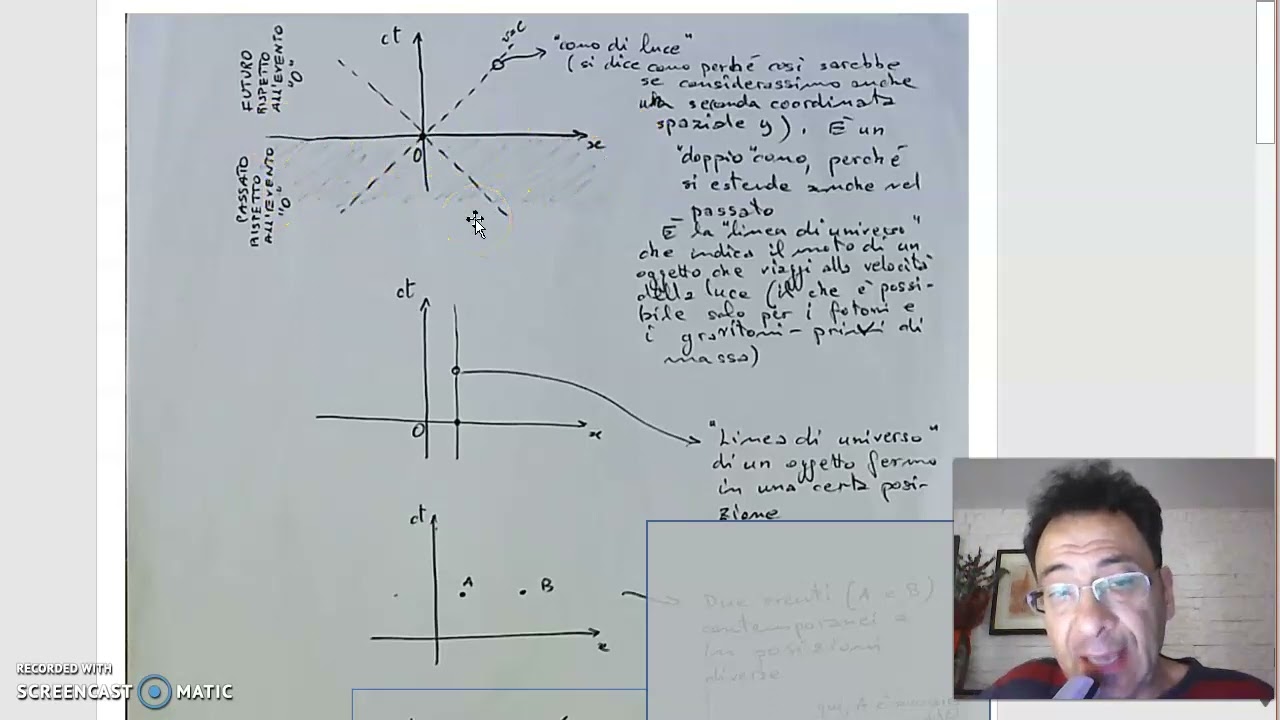 FUTURO
RISPETTO
ALL'EVENTO
"O"
PASSATO
RISPETTO
ALL'EVENTO
"O"
ct
v=c
O
x
"cono di luce"
(si dice cono perché così sarebbe
se considerassimo anche
una seconda coordinata
spaziale y). È un
"doppio" cono, perché
si estende anche nel
passato
È la "linea di universo"
che indica il moto di un
oggetto che viaggi alla velocità
della luce (il che è possi-
bile solo per i fotoni e
i gravitoni - privi di
massa)
ct
O
x
"Linea di universo"
di un oggetto fermo
in una certa posi-
zione
ct
A
B
x
Due eventi (A e B)
contemporanei e
in posizioni
diverse
qui, A è
RECORDED WITH
SCREENCAST MATIC